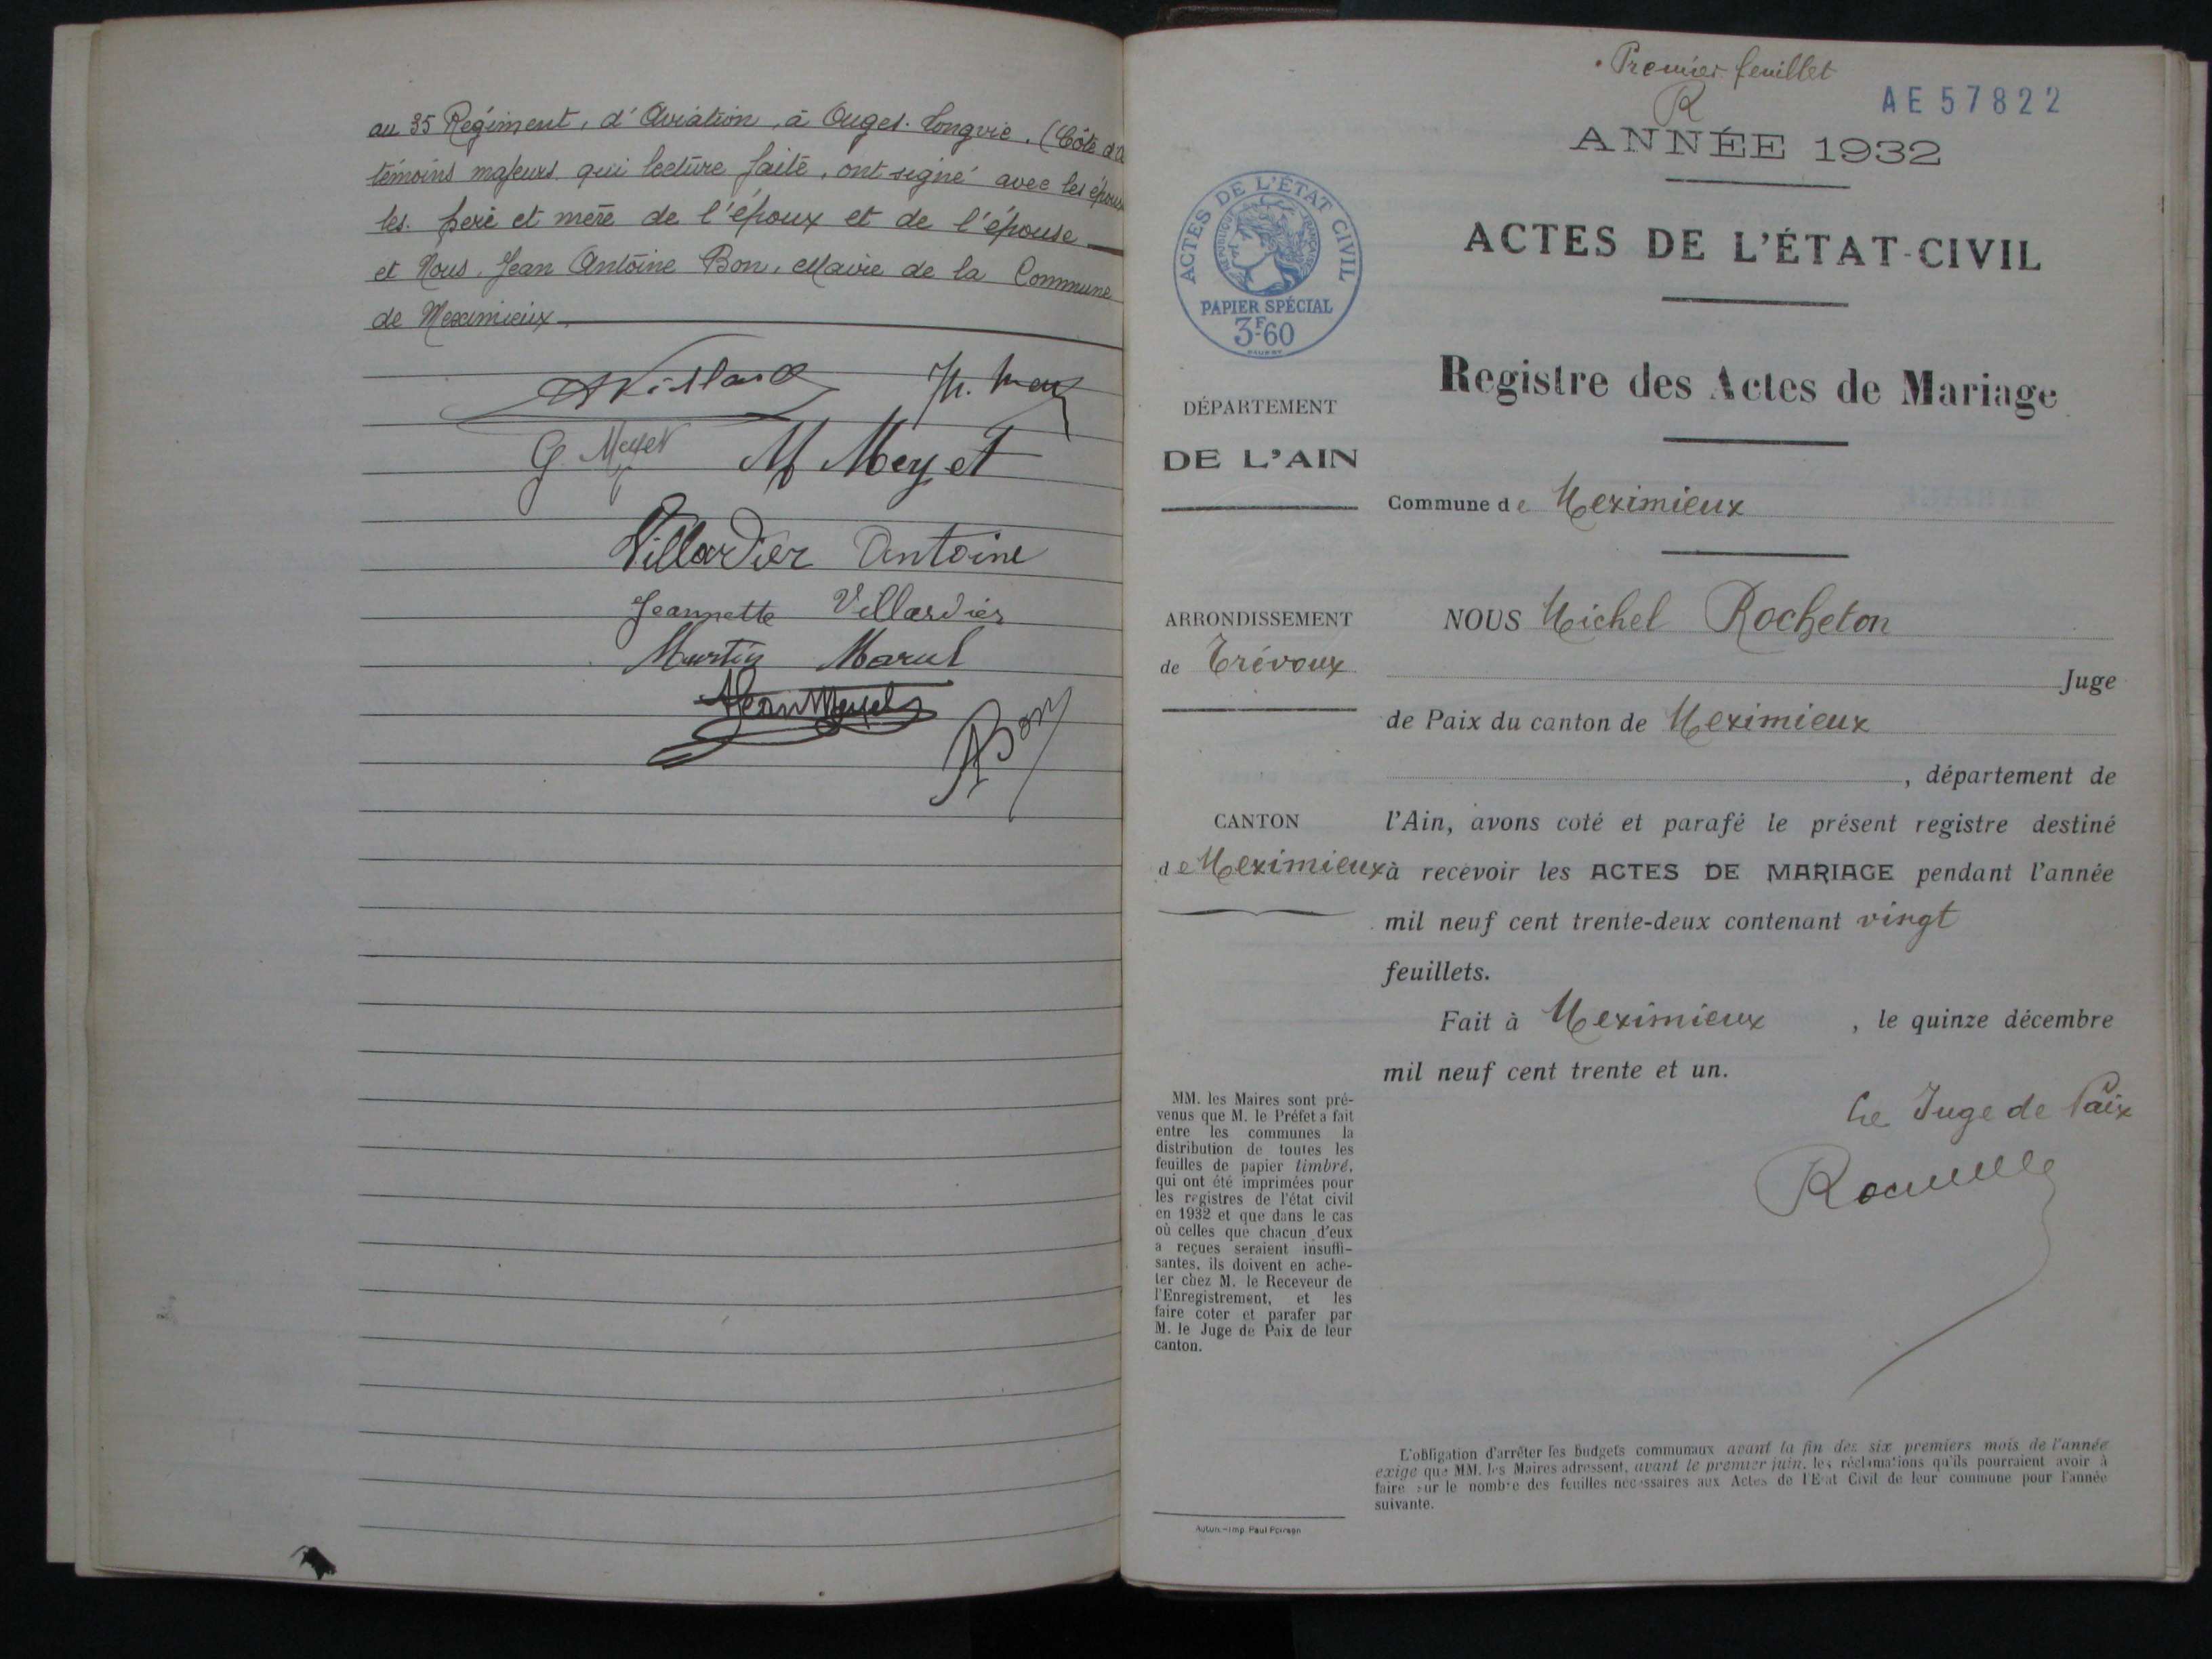 au 35 Régiment, d'Aviation, à Ouges-Longvic. (Côte d'O
témoins majeurs qui lecture faite, ont signé avec les époux
les père et mère de l'époux et de l'épouse
et Nous, Jean Antoine Bon, Maire de la Commune
de Meximieux
G. Meyet M Meyet
Villardier Antoine
Jeannette Villardier
Martin
Jean Meyet
ABon
Premier feuillet
R
AE57822
ANNÉE 1932
ACTES DE L'ÉTAT-CIVIL
Registre des Actes de Mariage
ACTES DE L'ÉTAT CIVIL
RÉPUBLIQUE FRANÇAISE
PAPIER SPÉCIAL
3F60
DÉPARTEMENT
DE L'AIN
ARRONDISSEMENT
de Trévoux
CANTON
de Meximieux
Commune de Meximieux
NOUS Michel Rocheton
Juge
de Paix du canton de Meximieux
, département de
l'Ain, avons coté et parafé le présent registre destiné
à recevoir les ACTES DE MARIAGE pendant l'année
mil neuf cent trente-deux contenant vingt
feuillets.
Fait à Meximieux , le quinze décembre
mil neuf cent trente et un.
Le Juge de Paix
MM. les Maires sont pré-
venus que M. le Préfet a fait
entre les communes la
distribution de toutes les
feuilles de papier timbré,
qui ont été imprimées pour
les registres de l'état civil
en 1932 et que dans le cas
où celles que chacun d'eux
a reçues seraient insuffi-
santes, ils doivent en ache-
ter chez M. le Receveur de
l'Enregistrement, et les
faire coter et parafer par
M. le Juge de Paix de leur
canton.
Autun.-Imp. Paul
L'obligation d'arrêter les budgets communaux avant la fin des six premiers mois de l'année
exige que MM. les Maires adressent, avant le premier juin, les réclamations qu'ils pourraient avoir à
faire sur le nombre des feuilles nécessaires aux Actes de l'Etat Civil de leur commune pour l'année
suivante.